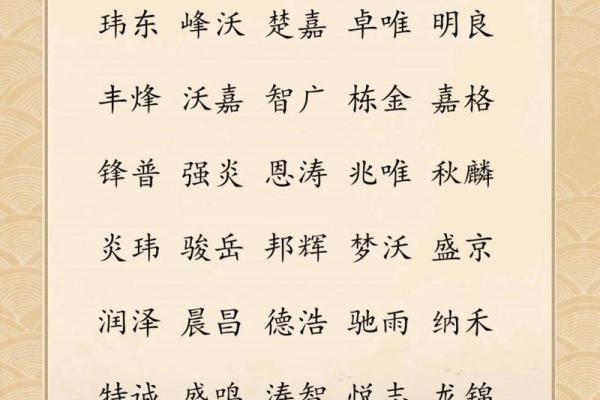 玮东 峰沃 楚嘉 卓唯 明良
丰烽 沃嘉 智广 栋金 嘉格
锋普 强炎 恩涛 兆唯 秋麟
炎玮 骏岳 邦辉 梦沃 盛京
润泽 晨昌 德浩 驰雨 纳禾
特诚 盛鸣 涛智 悦志 龙锦